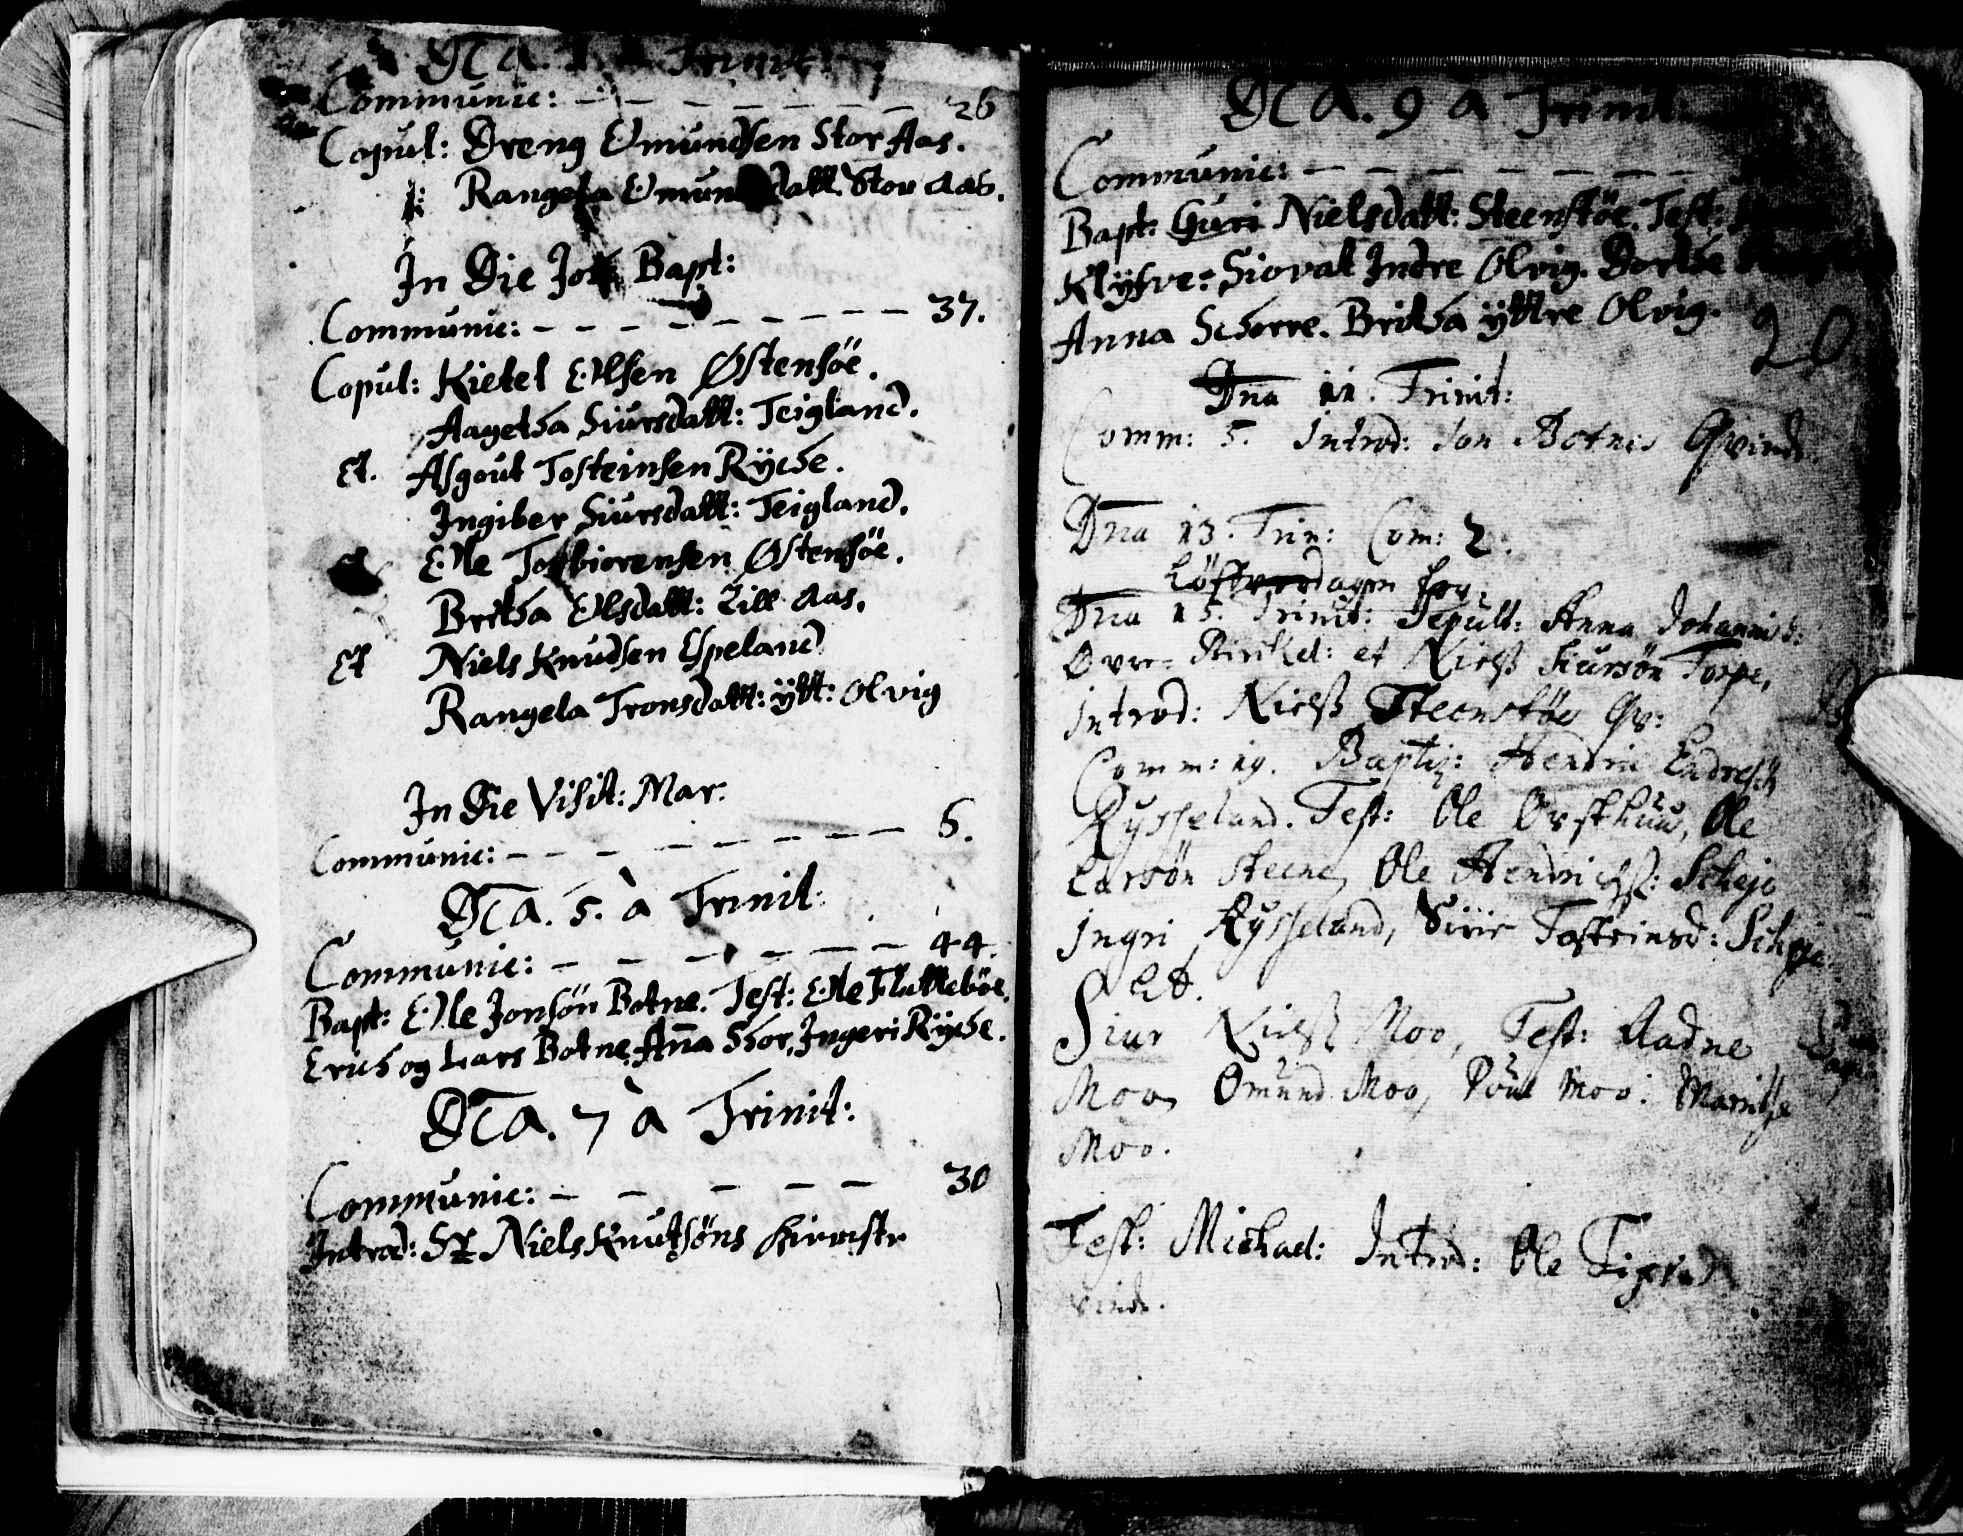 Dna. 1 à Trinit:
Communic: - - - - - - - - 26
Copul: Dreng Omundsen Stor Aas.
Rangela Omundsdatt. Stor Aas.
In Die Joh: Bapt:
Communic: - - - - - - - - - 37.
Copul: Kietel Olsen Østensöe.
Aagetha Siursdatt: Teigland.
Et. Asgout Tosteinsen Rÿche.
Ingiber Siursdatt: Teigland.
Et Olle Torbiorensen Østensöe.
Britha Olsdatt: Lill Aas.
Et Niels Knudsen Espeland
Rangela Tronsdatt: ÿtt: Olvig
In Die Visit: Mar:
Communic: - - - - - - - - 6.
Dna. 5. à Trinit:
Communic: - - - - - - - 44.
Bapt: Olle Jonsön Botne. Test: Olle Flatteböe.
Erich og Lars Botne, Anna Skor, Ingeri Rÿche.
Dna. 7 à Trinit:
Communic: - - - - - 30
Introd: Niels Knutsöns
Dna. 9 à Trinit:
Communic: - - - - - - -
Bapt: Guri Nielsdatt: Steenstöe. Test:
Klÿfve: Siovat Indre Olvig. Dorthe
Anna Schorre. Britha ÿttre Olvig. 20
Dna 11. Trinit:
Comm: 5. Introd: Jon Botnes Qvinde.
Dna 13. Trin: Com: 2.
Löfverdagen for
Dna 15. Trinit: Sepult: Anna Johannisd:
Ovre- et Nielß Siursön Torpe,
Introd: Nielß Steenstöes Qv:
Comm: 19. Baptiz: Hendric Endresß:
Rysseland. Test: Ole Orsthuus, Ole
Larsön Steene, Ole Hendrichß: Scheje
Ingri Rysseland, Sirir Tosteinsd: Scheje
Et.
Siur Nielß Moo, Test: Aadne
Moo, Omund Moo, Poul Moo: Maritje
Moo.
Fest: Michael: Introd: Ole